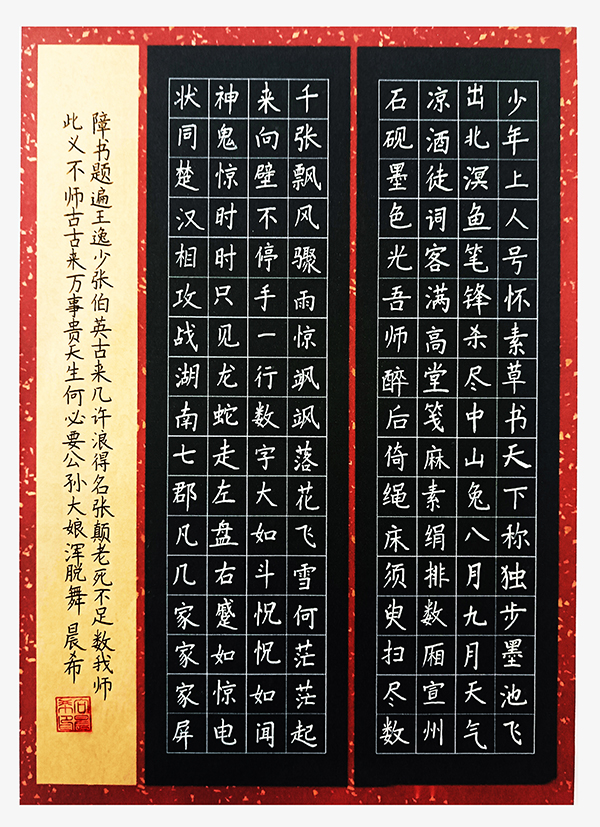 少年上人号怀素草书天下称独步墨池飞
出北溟鱼笔锋杀尽中山兔八月九月天气
凉酒徒词客满高堂笺麻素绢排数厢宣州
石砚墨色光吾师醉后倚绳床须臾扫尽数
千张飘风骤雨惊飒飒落花飞雪何茫茫起
来向壁不停手一行数字大如斗怳怳如闻
神鬼惊时时只见龙蛇走左盘右蹙如惊电
状同楚汉相攻战湖南七郡凡几家家家屏
障书题遍王逸少张伯英古来几许浪得名张颠老死不足数我师
此义不师古古来万事贵天生何必要公孙大娘浑脱舞 晨希